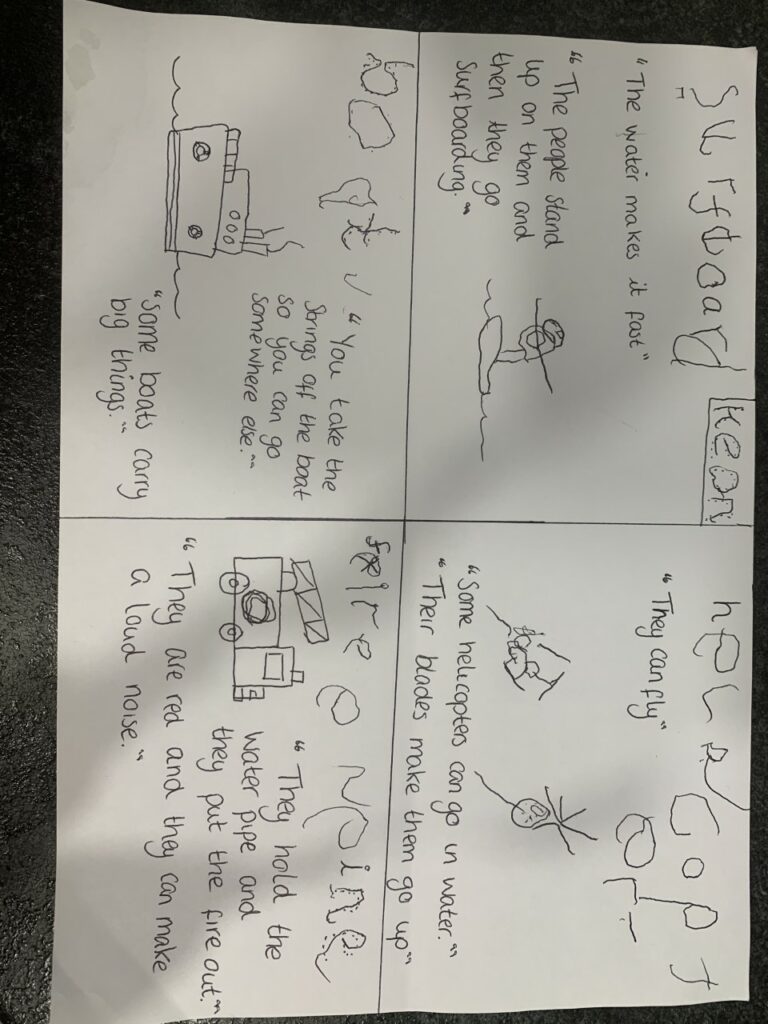 Surfboard
Kean
"The water makes it fast"
"The people stand
up on them and
then they go
surfboarding."
heLeCopt
or
"They can fly"
"Some helicopters can go in water."
"Their blades make them go up"
boat
"You take the
strings off the boat
so you can go
somewhere else."
"Some boats carry
big things."
fire
"They hold the
water pipe and
they put the fire out."
"They are red and they can make
a loud noise."